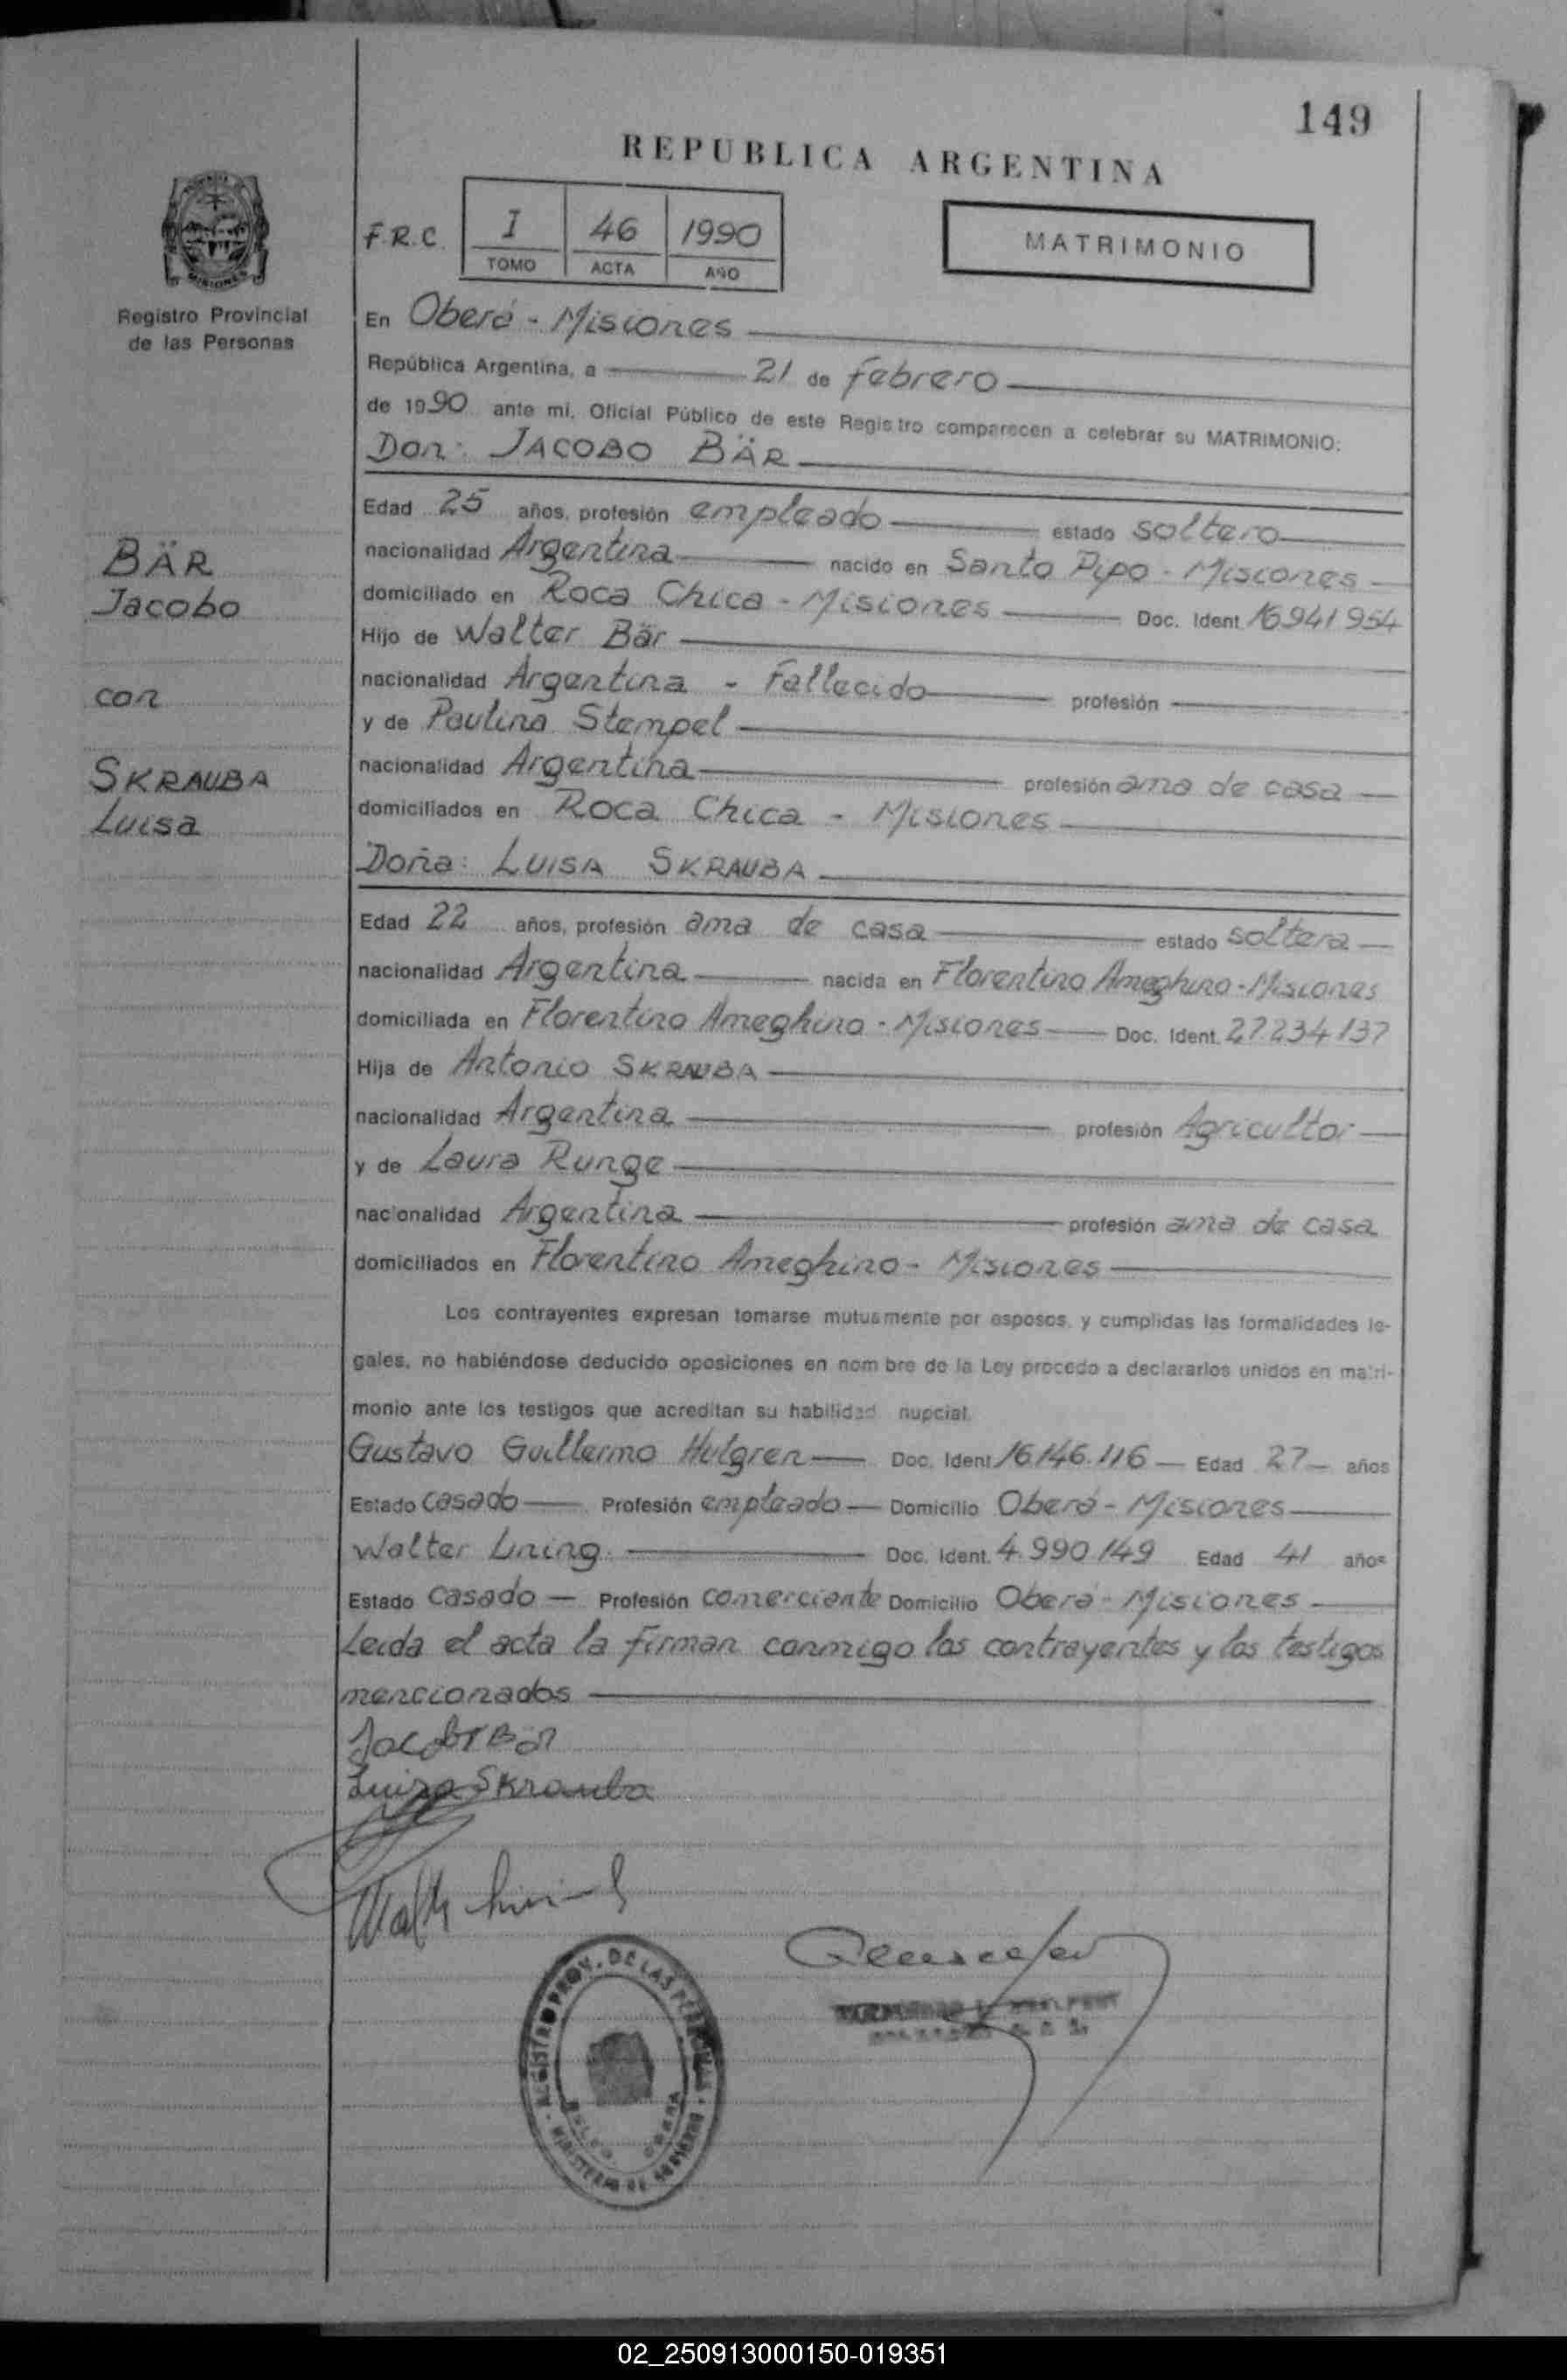 149
REPUBLICA ARGENTINA
F.R.C. I 46 1990
TOMO ACTA AÑO
MATRIMONIO
MISIONES
Registro Provincial
de las Personas
En Oberá - Misiones
República Argentina, a 21 de febrero
de 1990 ante mi, Oficial Público de este Registro comparecen a celebrar su MATRIMONIO:
Don: JACOBO BÄR
Edad 25 años, profesión empleado estado soltero
nacionalidad Argentina nacido en Santo Pipo - Misiones
domiciliado en Roca Chica - Misiones Doc. Ident. 16.941.954
Hijo de Walter Bär
nacionalidad Argentina - Fallecido profesión
y de Paulina Stempel
nacionalidad Argentina profesión ama de casa
domiciliados en Roca Chica - Misiones
Doña: LUISA SKRAUBA
Edad 22 años, profesión ama de casa estado soltera
nacionalidad Argentina nacida en Florentino Ameghino - Misiones
domiciliada en Florentino Ameghino - Misiones Doc. Ident. 27.234.137
Hija de Antonio SKRAUBA
nacionalidad Argentina profesión Agricultor
y de Laura Runge
nacionalidad Argentina profesión ama de casa
domiciliados en Florentino Ameghino - Misiones
BÄR
Jacobo
con
SKRAUBA
Luisa
Los contrayentes expresan tomarse mutuamente por esposos, y cumplidas las formalidades le-
gales, no habiéndose deducido oposiciones en nombre de la Ley procedo a declararlos unidos en matri-
monio ante los testigos que acreditan su habilidad nupcial.
Gustavo Guillermo Hulgren Doc. Ident. 16.146.116 Edad 27 años
Estado casado Profesión empleado Domicilio Oberá - Misiones
Walter Lining Doc. Ident. 4.990.149 Edad 41 años
Estado casado Profesión comerciante Domicilio Oberá - Misiones
Leida el acta la firman conmigo los contrayentes y los testigos
mencionados
Jacobo Bär
Luiza Skrauba
REGISTRO PROV. DE LAS PERSONAS
MINISTERIO DE GOBIERNO
02_250913000150-019351